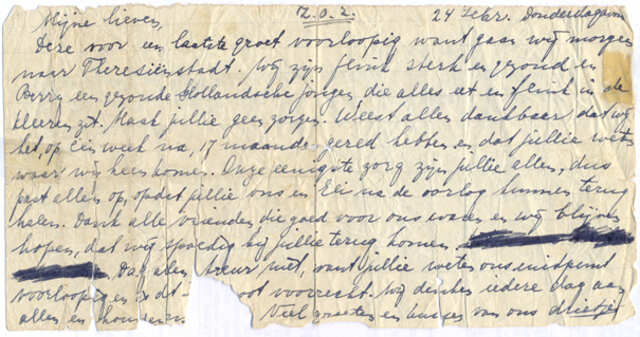 Mijne lieven, Z.O.Z. 24 Febr. Donderdagavon
Deze voor een laatste groet voorloopig want gaan wij morgen
naar Theresiënstadt. Wij zijn flink sterk en gezond en
Berry een gezonde Hollandsche jongen die alles eet en flink in de
kleeren zit. Maak jullie geen zorgen. Weest allen dankbaar dat wij
het, op een week na, 17 maanden gered hebben en dat jullie weten
waar wij heen komen. Onze eenigste zorg zijn jullie allen, dus
past allen op, opdat jullie ons en Eli na de oorlog kunnen terug
halen. Dank alle vrienden die goed voor ons waren en wij blijven
hopen, dat wij spoedig bij jullie terug komen
Dag allen treur niet, want jullie weten ons
voorloopig en dit oot voorrecht. Wij denken iedere dag aan
allen en Veel groeten en kussen van ons drietje